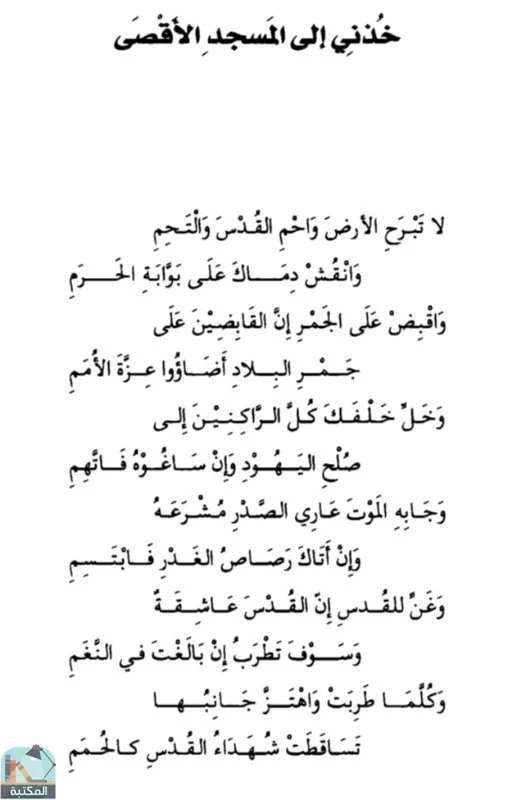 خُذنِي إلى المَسجدِ الأَقْصَى
لا تَبْرَحِ الأرضَ وَاحْمِ القُدْسَ وَالْتَحِمِ
وَانْقُشْ دِمَاكَ عَلَى بَوَّابَةِ الحَرَمِ
وَاقْبِضْ عَلَى الجَمْرِ إِنَّ القَابِضِيْنَ عَلَى
جَمْرِ البِلادِ أَضَاؤُوا عِزَّةَ الأُمَمِ
وَخَلِّ خَلْفَكَ كُلَّ الرَّاكِنِيْنَ إِلى
صُلْحِ اليَهُوْدِ وَإِنْ سَاغُوْهُ فَاتَّهِمِ
وَجَابِهِ المَوْتَ عَارِي الصَّدْرِ مُشْرَعَهُ
وَإِنْ أَتَاكَ رَصَاصُ الغَدْرِ فَابْتَسِمِ
وَغَنِّ للقُدسِ إِنّ القُدْسَ عَاشِقَةٌ
وَسَوْفَ تَطْرَبُ إِنْ بَالَغْتَ في النَّغَمِ
وَكُلَّمَا طَرِبَتْ وَاهْتَزَّ جَانِبُهَا
تَسَاقَطَتْ شُهَدَاءُ القُدْسِ كالحُمَمِ
المكتبة